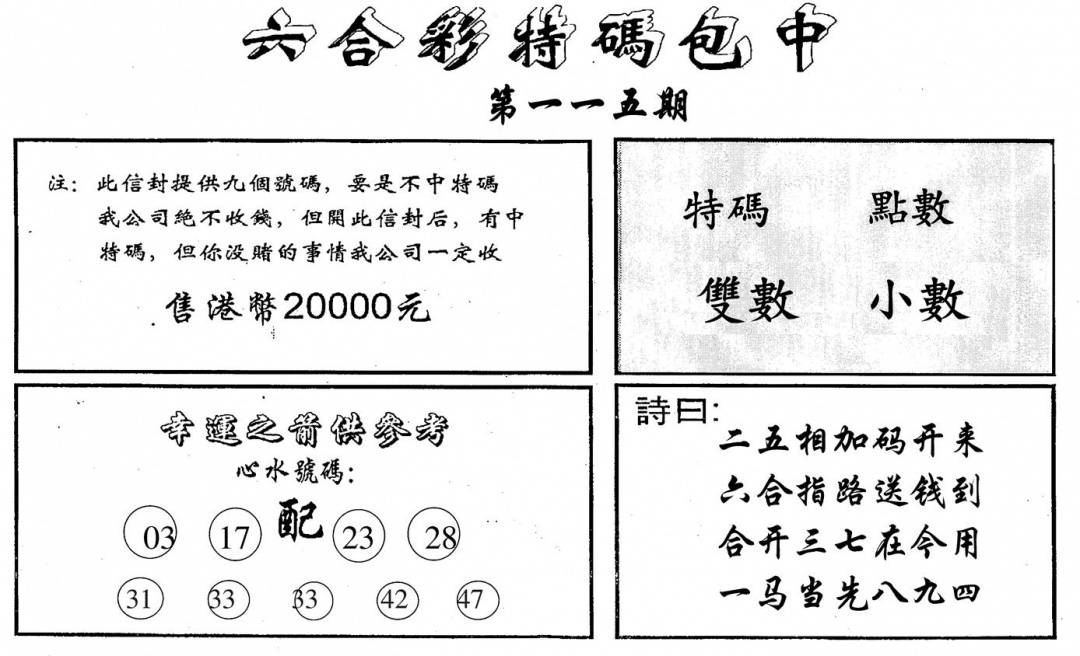 六合彩特碼包中
第一一五期
注：此信封提供九個號碼，要是不中特碼
我公司絕不收錢，但開此信封后，有中
特碼，但你没賭的事情我公司一定收
售港幣20000元
特碼 點數
雙數 小數
幸運之箭供參考
心水號碼：
03 17 配 23 28
31 33 33 42 47
詩曰：
二五相加码开来
六合指路送钱到
合开三七在今用
一马当先八九四